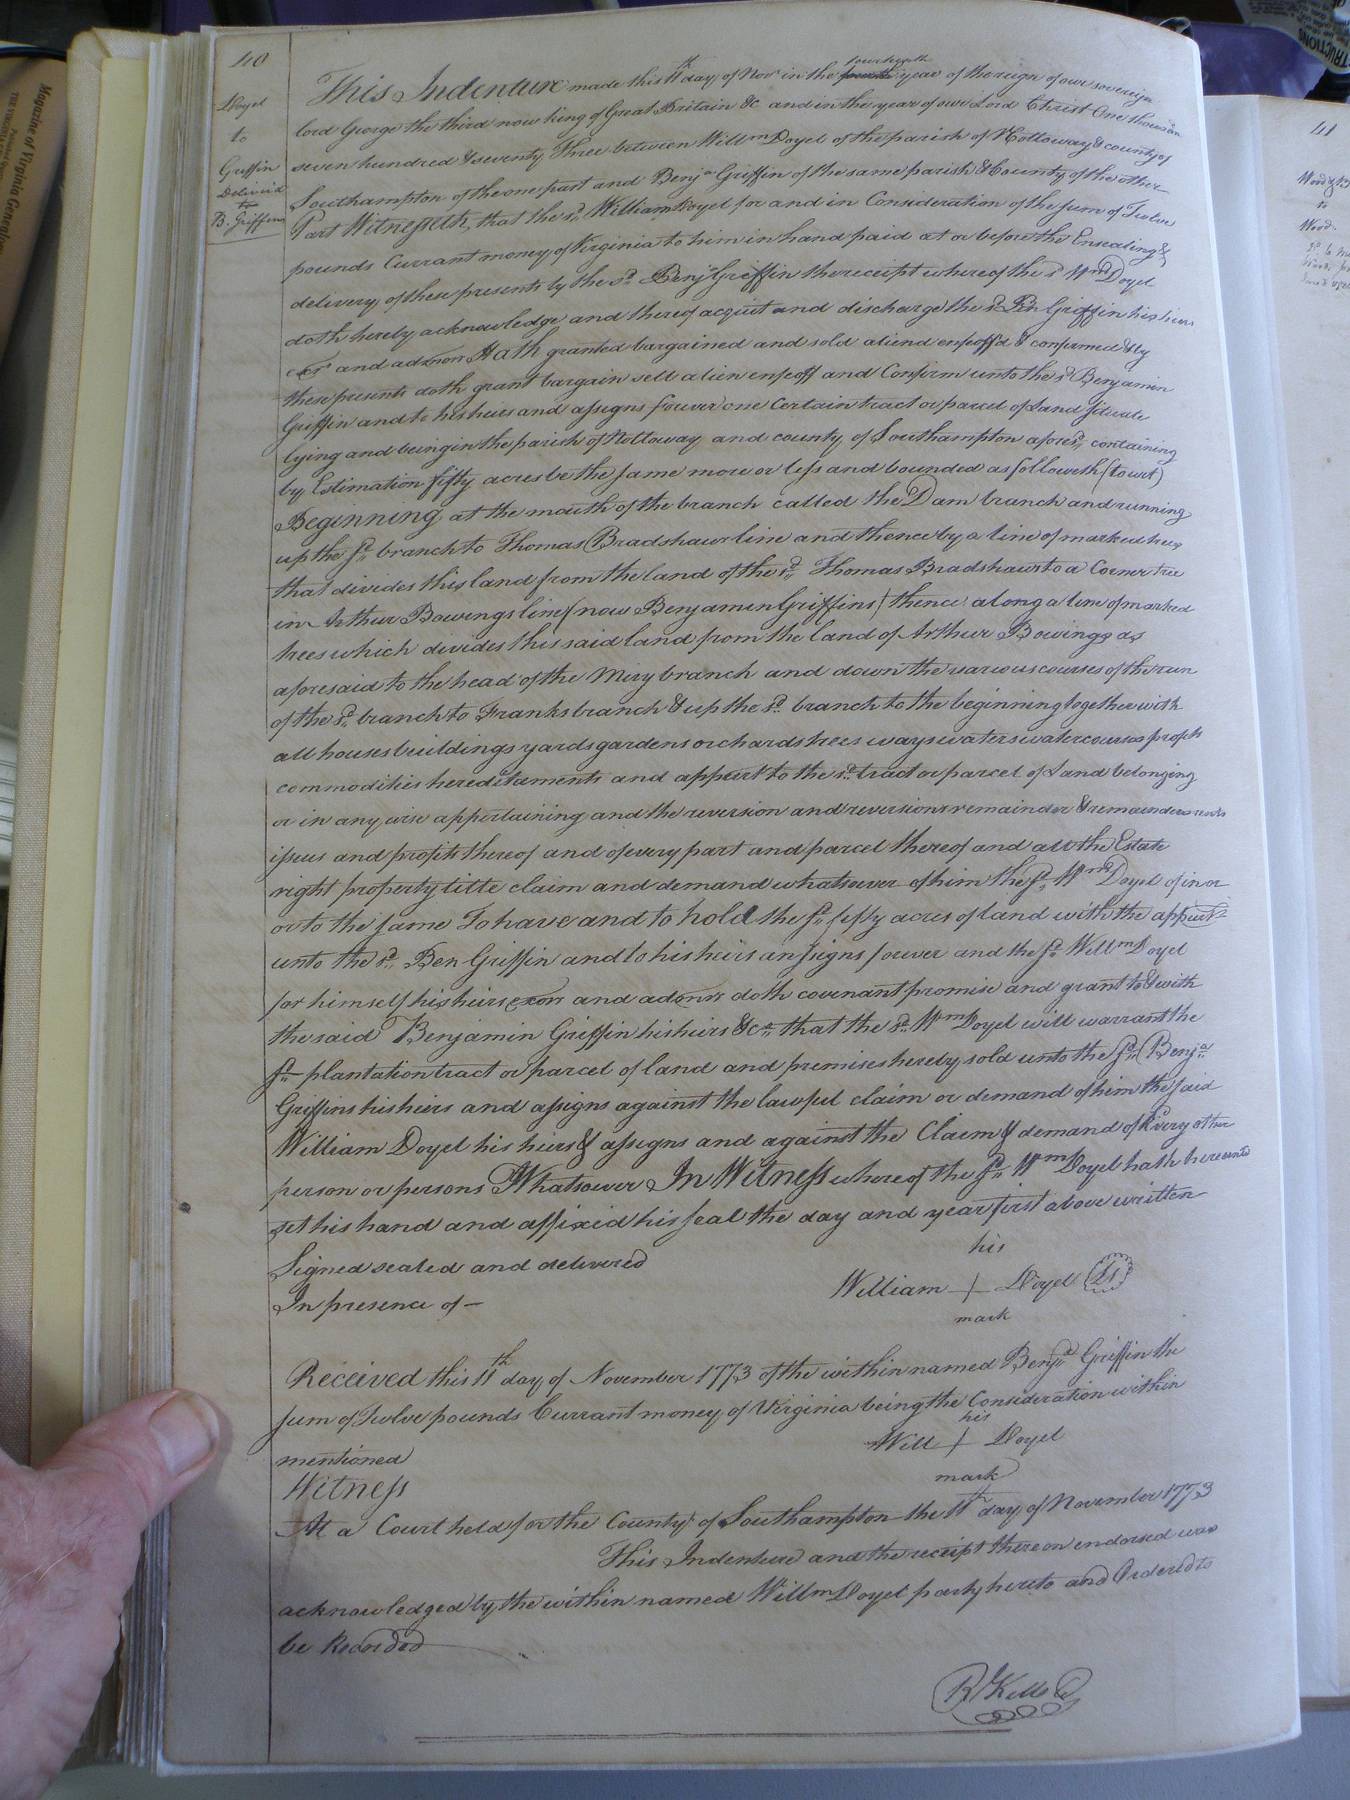 40
Doyel
to
Griffin
Delivered
to
B. Griffin
This Indenture made this 11th day of Novr in the fourteenth year of the reign of our sovereign
lord George the third now king of Great Britain &c and in the year of our Lord Christ One thousan
seven hundred & seventy Three between Willm Doyel of the parish of Nottoway & county of
Southampton of the one part and Benja Griffin of the same parish & County of the other
Part Witnesseth, that the sd. William Doyel for and in Consideration of the sum of Twelve
pounds Currant money of Virginia to him in hand paid at or before the Ensealing &
delivery of these presents by the sd. Benja Griffin the receipt whereof the sd Wm Doyel
doth hereby acknowledge and thereof acquit and discharge the sd Ben Griffin his heirs
exrs and admors Hath granted bargained and sold aliend enfeoff'd & confirmed & by
these presents doth grant bargain sell alien enfeoff and Confirm unto the sd Benjamin
Griffin and to his heirs and assigns forever one Certain tract or parcel of Land situate
lying and being in the parish of Nottoway and county of Southampton aforesd. containing
by Estimation fifty acres be the same more or less and bounded as followeth (to wit)
Beginning at the mouth of the branch called the Dam branch and running
up the sd. branch to Thomas Bradshaws line and thence by a line of marked trees
that divides this land from the land of the sd. Thomas Bradshaws to a Corner tree
in Arthur Bowings line (now Benjamin Griffins) thence along a line of marked
trees which divides this said land from the land of Arthur Bowings as
aforesaid to the head of the Miry branch and down the various courses of the run
of the sd. branch to Franks branch & up the sd. branch to the beginning together with
all houses buildings yards gardens orchards trees ways waters watercourses profits
commodities hereditaments and appurt to the sd. tract or parcel of Land belonging
or in any wise appertaining and the reversion and reversions remainder & remainders rents
issues and profits thereof and of every part and parcel thereof and all the Estate
right property title claim and demand whatsoever of him the sd. Wm Doyel of in or
or to the same To have and to hold the sd. fifty acres of land with the appurts
unto the sd. Ben Griffin and to his heirs an signs forever and the sd. Willm Doyel
for himself his heirs exors and admors doth covenant promise and grant to & with
the said Benjamin Griffin his heirs &ca. that the sd. Wm Doyel will warrant the
sd. plantation tract or parcel of land and premises hereby sold unto the sd. Benja.
Griffins his heirs and assigns against the lawful claim or demand of him the said
William Doyel his heirs & assigns and against the Claim & demand of Every other
person or persons Whatsoever In Witness whereof the sd. Wm Doyel hath hereunto
set his hand and affixed his seal the day and year first above written
Signed sealed and delivered
In presence of –
his
William + Doyel (Ls)
mark
Received this 11th day of November 1773 of the within named Benja. Griffin the
sum of Twelve pounds Currant money of Virginia being the Consideration within
mentioned
his
Will + Doyel
mark
Witness
At a Court held for the County of Southampton the 11th day of November 1773
This Indenture and the receipt thereon endorsed was
acknowledged by the within named Willm Doyel party hereto and Ordered to
be Recorded
R Kello
41
Wood
to
Wood.
Magazine of Virginia Genealogy